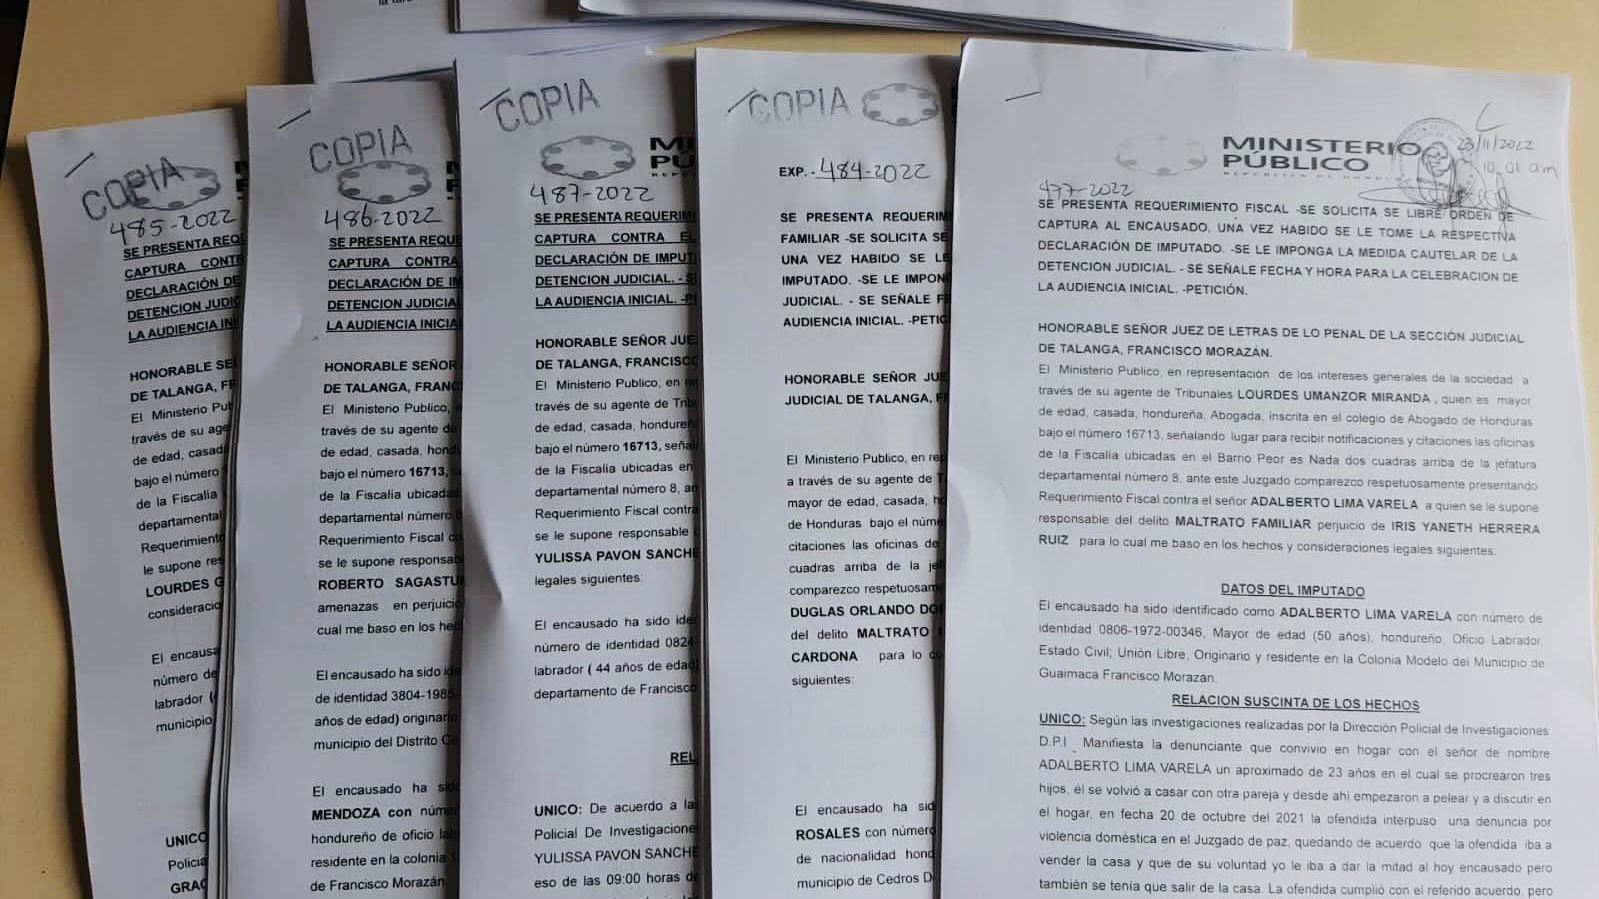 COPIA
485-2022
SE PRESENTA REQU
CAPTURA CONTR
DECLARACIÓN DE
DETENCION JUDIC
LA AUDIENCIA INI
HONORABLE SE
DE TALANGA, F
El Ministerio Pub
través de su age
de edad, casad
bajo el número
de la Fiscalía
departamental
Requerimiento
le supone res
LOURDES G
consideracio
El encausa
número de
labrador (
municipio
UNICO
Policia
GRAC
COPIA
486-2022
SE PRESENTA REQUE
CAPTURA CONTRA
DECLARACIÓN DE IM
DETENCION JUDICIAL
LA AUDIENCIA INICIA
HONORABLE SEÑOR
DE TALANGA, FRANC
El Ministerio Publico,
través de su agente de
de edad, casada, hond
bajo el número 16713, s
de la Fiscalía ubicadas
departamental número 8
Requerimiento Fiscal co
se le supone responsab
ROBERTO SAGASTU
amenazas en perjuicio
cual me baso en los hec
El encausado ha sido id
de identidad 3804-1985-
años de edad) originario
municipio del Distrito Ce
El encausado ha sid
MENDOZA con núme
hondureño de oficio lab
residente en la colonia
de Francisco Morazán
COPIA
MI
PÚ
487-2022
SE PRESENTA REQUERIMI
CAPTURA CONTRA EL
DECLARACIÓN DE IMPUT
DETENCION JUDICIAL. - S
LA AUDIENCIA INICIAL. -P
HONORABLE SEÑOR JUE
DE TALANGA, FRANCISC
El Ministerio Publico, en r
través de su agente de Trib
de edad, casada, hondureñ
bajo el número 16713, señal
de la Fiscalía ubicadas en
departamental número 8, an
Requerimiento Fiscal contra
se le supone responsable
YULISSA PAVON SANCHE
legales siguientes:
El encausado ha sido ide
número de identidad 0824-
labrador ( 44 años de edad
departamento de Francisco
REL
UNICO: De acuerdo a la
Policial De Investigacione
YULISSA PAVON SANCHE
eso de las 09:00 horas d
COPIA
EXP.- 484-2022
SE PRESENTA REQUERIM
FAMILIAR -SE SOLICITA SE
UNA VEZ HABIDO SE LE
IMPUTADO. -SE LE IMPON
JUDICIAL. - SE SEÑALE FE
AUDIENCIA INICIAL. -PETIC
HONORABLE SEÑOR JUE
JUDICIAL DE TALANGA, F
El Ministerio Publico, en rep
a través de su agente de T
mayor de edad, casada, ho
de Honduras bajo el núme
citaciones las oficinas de
cuadras arriba de la jef
comparezco respetuosam
DUGLAS ORLANDO DO
del delito MALTRATO
CARDONA para lo cu
siguientes:
El encausado ha sid
ROSALES con número
de nacionalidad hond
municipio de Cedros D
MINISTERIO
PÚBLICO
REPUBLICA DE HONDURAS
23/11/2022
10:01 am
477-2022
SE PRESENTA REQUERIMIENTO FISCAL -SE SOLICITA SE LIBRE ORDEN DE
CAPTURA AL ENCAUSADO, UNA VEZ HABIDO SE LE TOME LA RESPECTIVA
DECLARACIÓN DE IMPUTADO. -SE LE IMPONGA LA MEDIDA CAUTELAR DE LA
DETENCION JUDICIAL. - SE SEÑALE FECHA Y HORA PARA LA CELEBRACION DE
LA AUDIENCIA INICIAL. -PETICIÓN.
HONORABLE SEÑOR JUEZ DE LETRAS DE LO PENAL DE LA SECCIÓN JUDICIAL
DE TALANGA, FRANCISCO MORAZÁN.
El Ministerio Publico, en representación de los intereses generales de la sociedad a
través de su agente de Tribunales LOURDES UMANZOR MIRANDA , quien es mayor
de edad, casada, hondureña, Abogada, inscrita en el colegio de Abogado de Honduras
bajo el número 16713, señalando lugar para recibir notificaciones y citaciones las oficinas
de la Fiscalía ubicadas en el Barrio Peor es Nada dos cuadras arriba de la jefatura
departamental número 8, ante este Juzgado comparezco respetuosamente presentando
Requerimiento Fiscal contra el señor ADALBERTO LIMA VARELA a quien se le supone
responsable del delito MALTRATO FAMILIAR perjuicio de IRIS YANETH HERRERA
RUIZ para lo cual me baso en los hechos y consideraciones legales siguientes:
DATOS DEL IMPUTADO
El encausado ha sido identificado como ADALBERTO LIMA VARELA con número de
identidad 0806-1972-00346, Mayor de edad (50 años), hondureño, Oficio Labrador,
Estado Civil; Unión Libre, Originario y residente en la Colonia Modelo del Municipio de
Guaimaca Francisco Morazán.
RELACION SUSCINTA DE LOS HECHOS
UNICO: Según las investigaciones realizadas por la Dirección Policial de Investigaciones
D.P.I , Manifiesta la denunciante que convivio en hogar con el señor de nombre
ADALBERTO LIMA VARELA un aproximado de 23 años en el cual se procrearon tres
hijos, él se volvió a casar con otra pareja y desde ahí empezaron a pelear y a discutir en
el hogar, en fecha 20 de octubre del 2021 la ofendida interpuso una denuncia por
violencia doméstica en el Juzgado de paz, quedando de acuerdo que la ofendida iba a
vender la casa y que de su voluntad yo le iba a dar la mitad al hoy encausado pero
también se tenía que salir de la casa. La ofendida cumplió con el referido acuerdo, pero